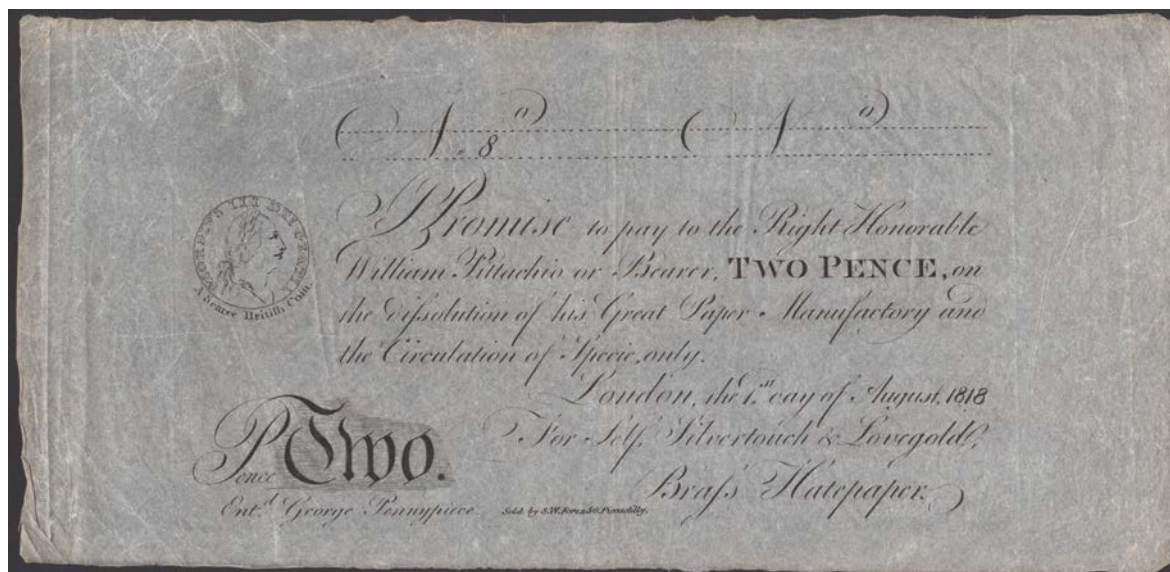 No No
8
I Promise to pay to the Right Honorable
William Pittachio or Bearer, TWO PENCE, on
the Difsolution of his Great Paper Manufactory and
the Circulation of Specie, only.
London, the 1st day of August, 1818
For Self, Silvertouch & Lovegold,
Brafs Hatepaper.
Pence Two.
Entd. George Pennypiece
Sold by S.W. Fores 50 Piccadilly.
A Scarce Britifh Coin.